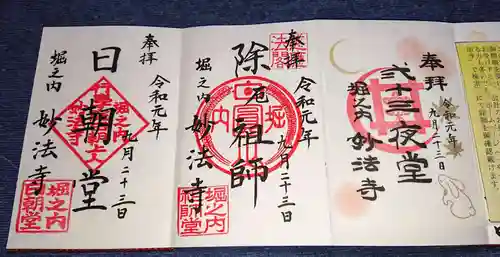 奉拝
令和元年
九月二十三日
弐十三夜堂
堀之内
妙法寺
奉拝
令和元年
九月二十三日
除厄祖師
堀之内
妙法寺
堀之内
祖師堂
奉拝
令和元年
九月二十三日
日朝堂
堀之内
妙法寺
堀之内
日朝堂